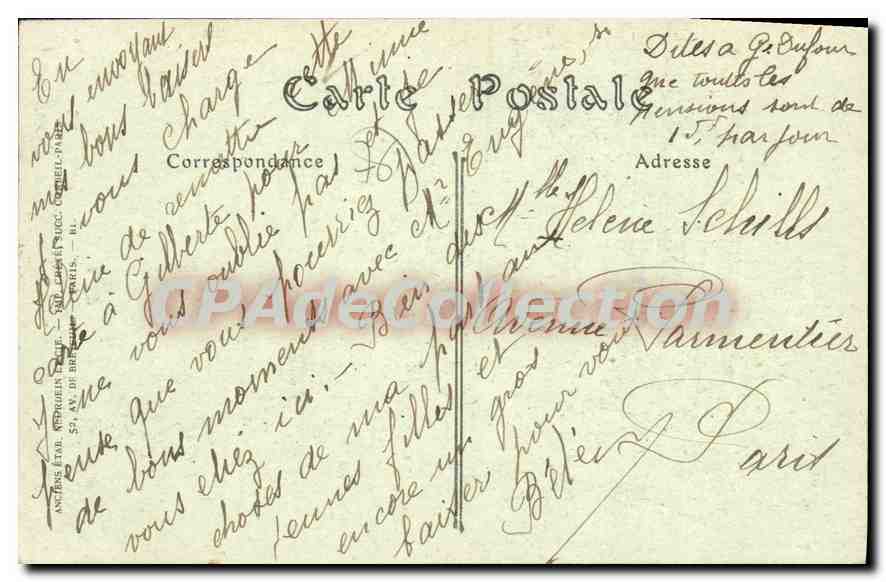 Carte Postale
Correspondance
Adresse
Dites a G. Dufour
que toutes les
pensions sont de
15f par jour
Mlle Helene Schills
Avenue Parmentier
Paris
En
vous envoyant
mes bons baisers
je vous charge
de remettre cette
carte à Gilberte pour
Je ne vous oublie pas et je
pense que vous pourriez passer
de bons moments avec Mr Eugène, si
vous étiez ici. - Bien des
choses de ma part aux
jeunes filles et
encore un gros
baiser pour vous
ANCIENS ÉTAB. NEURDEIN ET CIE. — IMP. CRÉTÉ, SUCC. CORBEIL-PARIS
52, AV. DE BRETEUIL, PARIS. — BI.
CPAdeCollection